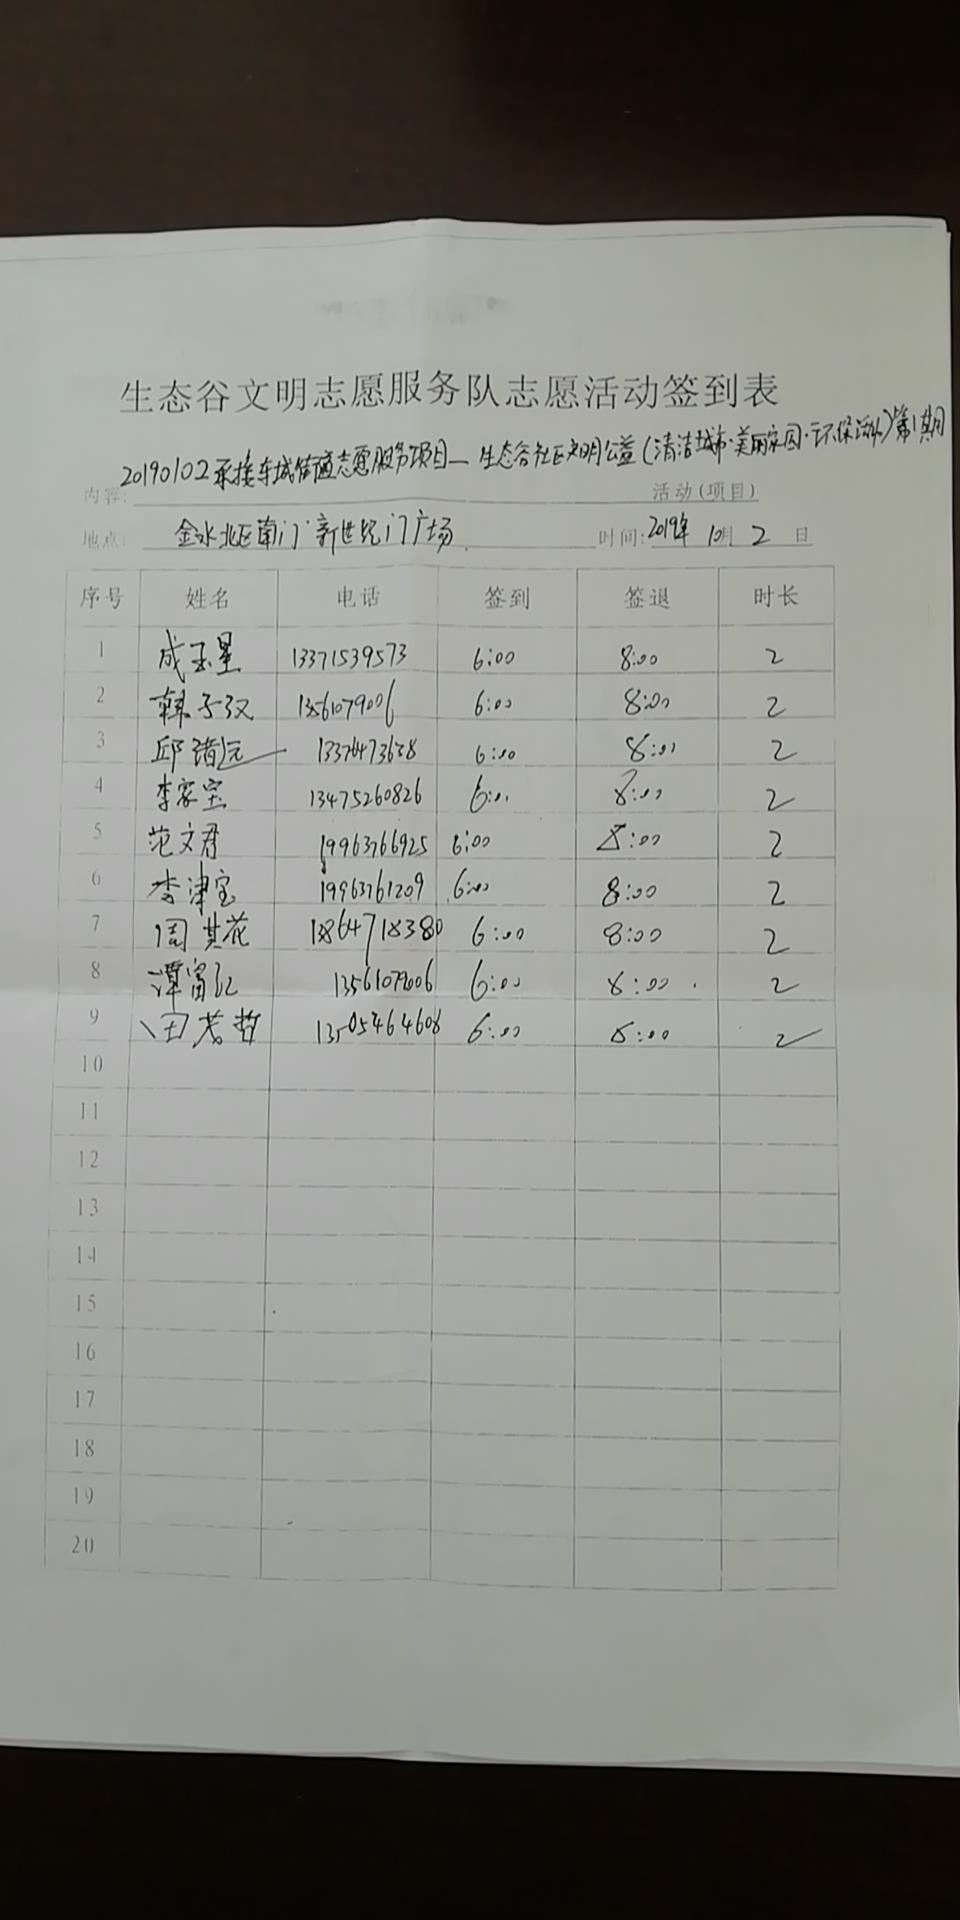 生态谷文明志愿服务队志愿活动签到表
20190102承接东城街道志愿服务项目—生态谷社区文明公益(清洁城市·美丽家园·环保活动)第1期
内容: 活动(项目)
地点: 金水北区南门 新世纪门广场 时间: 2019年 10月 2 日
序号 姓名 电话 签到 签退 时长
1 成玉星 13371539573 6:00 8:00 2
2 韩子汉 13561079006 6:00 8:00 2
3 邱 6:00 8:00 2
4 李家宝 13475260826 6:00 8:00 2
5 范文君 19963766925 6:00 8:00 2
6 李津宝 19963761209 6:00 8:00 2
7 周其花 1864718380 6:00 8:00 2
8 谭富江 13561079006 6:00 8:00 2
9 田茗哲 13505464608 6:00 8:00 2
10
11
12
13
14
15
16
17
18
19
20